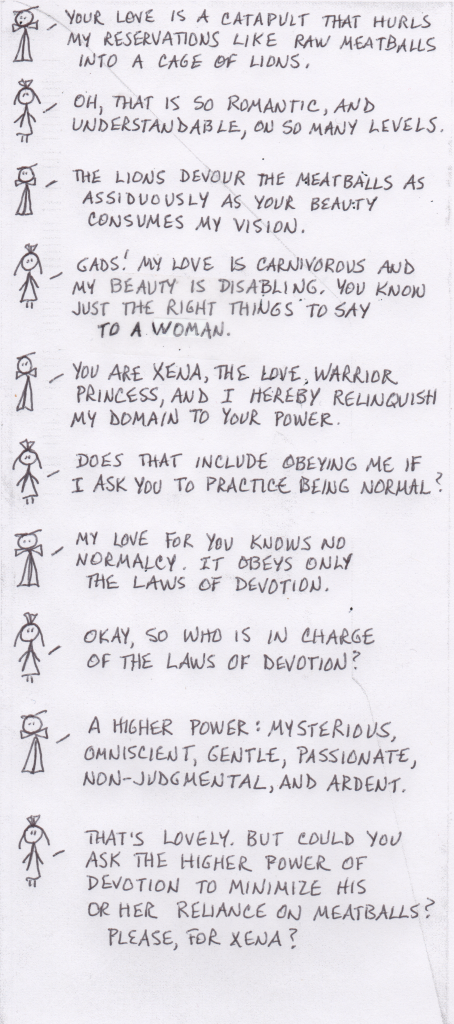 YOUR LOVE IS A CATAPULT THAT HURLS
MY RESERVATIONS LIKE RAW MEATBALLS
INTO A CAGE OF LIONS.
OH, THAT IS SO ROMANTIC, AND
UNDERSTANDABLE, ON SO MANY LEVELS.
THE LIONS DEVOUR THE MEATBALLS AS
ASSIDUOUSLY AS YOUR BEAUTY
CONSUMES MY VISION.
GADS! MY LOVE IS CARNIVOROUS AND
MY BEAUTY IS DISABLING. YOU KNOW
JUST THE RIGHT THINGS TO SAY
TO A WOMAN.
YOU ARE XENA, THE LOVE, WARRIOR
PRINCESS, AND I HEREBY RELINQUISH
MY DOMAIN TO YOUR POWER.
DOES THAT INCLUDE OBEYING ME IF
I ASK YOU TO PRACTICE BEING NORMAL?
MY LOVE FOR YOU KNOWS NO
NORMALCY. IT OBEYS ONLY
THE LAWS OF DEVOTION.
OKAY, SO WHO IS IN CHARGE
OF THE LAWS OF DEVOTION?
A HIGHER POWER: MYSTERIOUS,
OMNISCIENT, GENTLE, PASSIONATE,
NON-JUDGMENTAL, AND ARDENT.
THAT'S LOVELY. BUT COULD YOU
ASK THE HIGHER POWER OF
DEVOTION TO MINIMIZE HIS
OR HER RELIANCE ON MEATBALLS?
PLEASE, FOR XENA?